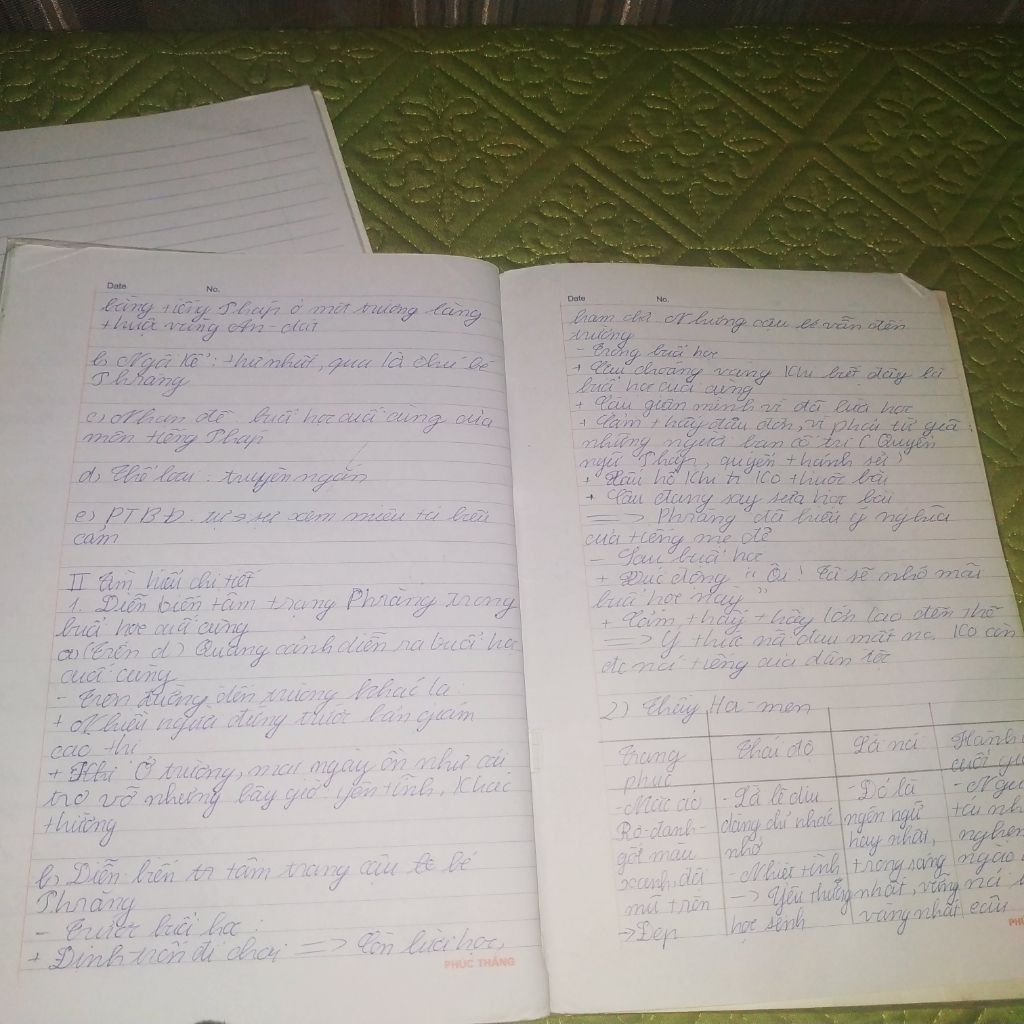 Date No.
bằng tiếng Pháp ở một trường làng
thuộc vùng An-dát
b) Ngôi kể: thứ nhất, qua là chú bé
Phrăng
c) Nhan đề buổi học cuối cùng của
môn tiếng Pháp
d) Thể loại: truyện ngắn
e) PTBĐ: tự sự xem miêu tả biểu
cảm
II Tìm hiểu chi tiết
1. Diễn biến tâm trạng Phrăng trong
buổi học cuối cùng
a) (Trên đ) Quang cảnh diễn ra buổi học
cuối cùng
- Trên đường đến trường khác lạ:
+ Nhiều người đứng trước bản cáo
cao thị
+ Ở trường, mọi ngày ồn như cái
trợ vỡ nhưng bây giờ yên tĩnh, khác
thường
b) Diễn biến tr tâm trạng cậu bé
Phrăng
- Trước buổi học:
+ Định trốn đi chơi => Còn lười học,
PHÚC THẮNG
Date No.
ham chơi. Nhưng cậu vẫn đến
trường
- Trong buổi học
+ Cậu choáng váng khi biết đây là
buổi học cuối cùng
+ Cậu giận mình vì đã lười học
+ Cảm thấy đau đớn, vì phải từ giã
những người bạn cố tri (Quyển
ngữ Pháp, quyển thánh sử)
+ Xấu hổ khi ko thuộc bài
+ Cậu đang say sưa học bài
=> Phrăng đã hiểu ý nghĩa
của tiếng mẹ đẻ
- Sau buổi học
+ Xúc động "Ôi! Tôi sẽ nhớ mãi
buổi học này"
+ Cảm thấy thầy lớn lao đến thế
=> Ý thức nỗi đau mất nc, ko còn
đc nói tiếng của dân tộc
2) Thầy Ha-men
Trang Thái độ Lời nói Hành
phục cuối
- Mặc áo - Là lẽ dịu - Đó là
Rơ-đanh- dàng chỉ nhắc ngôn ngữ
gốt màu nhở hay nhất,
xanh, đội - Nhiệt tình trong sáng
mũ tròn -> Yêu thương nhất, vững
-> Đẹp học sinh vàng nhất